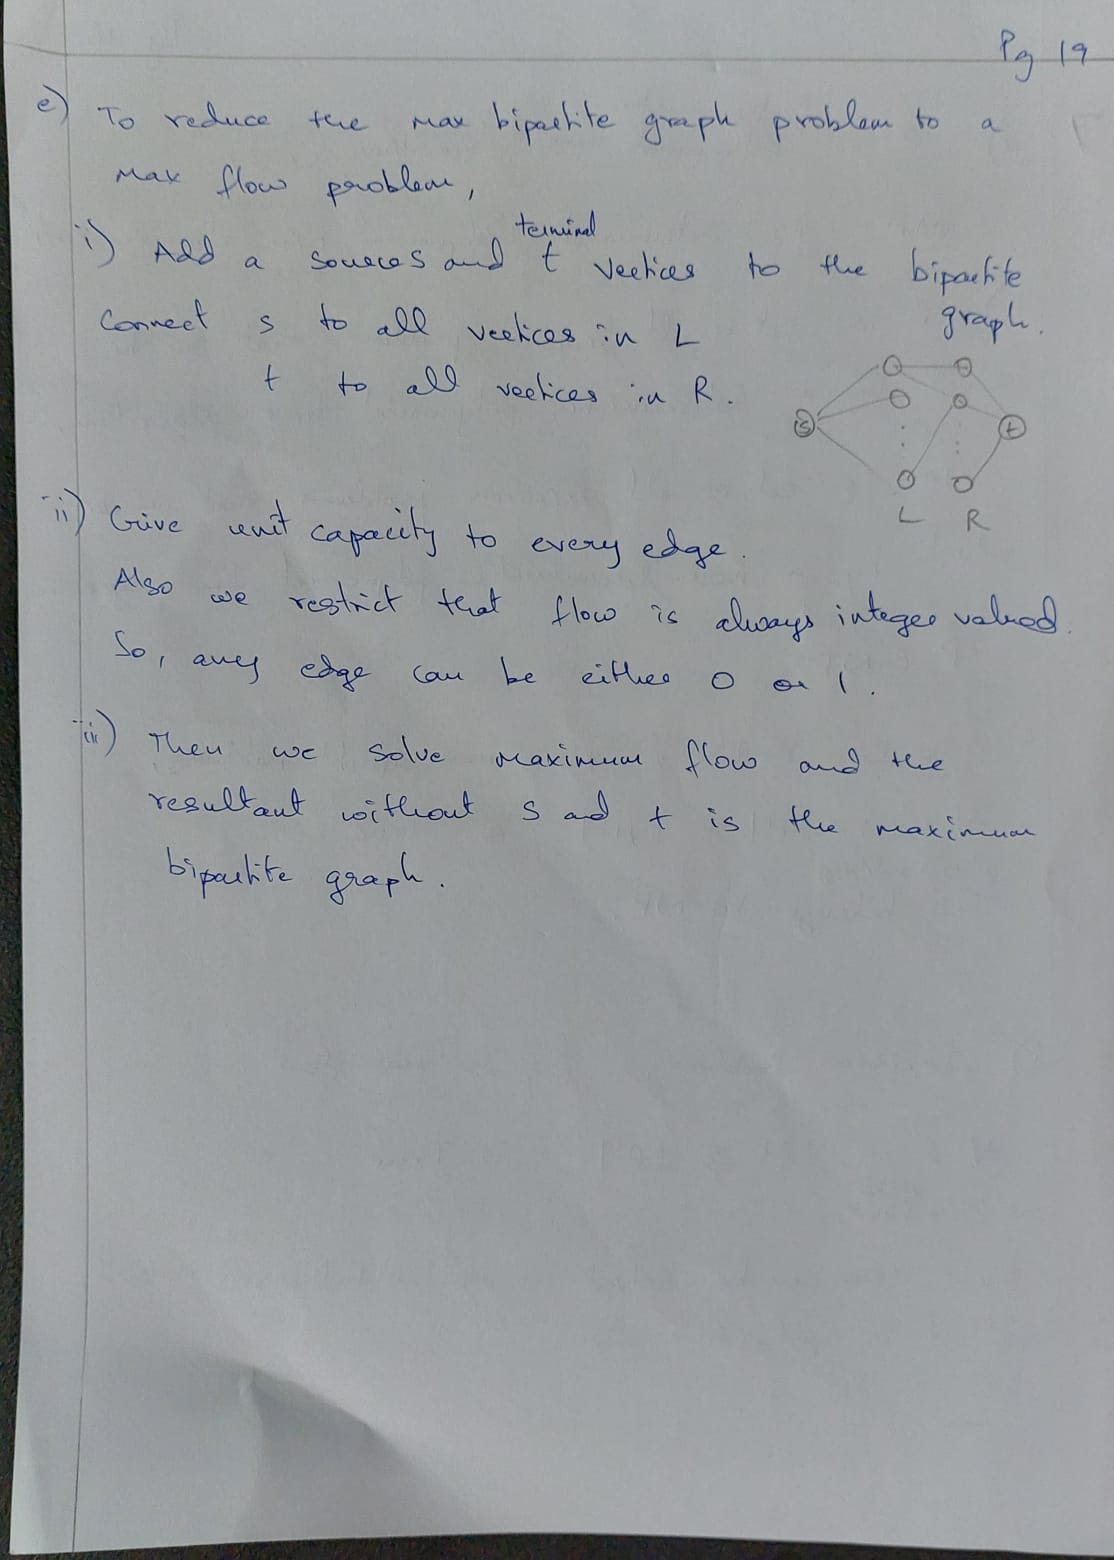 Pg 19
e) To reduce the max bipartite graph problem to a
Max flow problem,
terminal
i) Add a source s and t vertices to the bipartite
graph.
Connect s to all vertices in L
t to all vertices in R.
s
t
L R
ii) Give unit capacity to every edge.
Also we restrict that flow is always integer valued.
So, any edge can be either 0 or 1.
iii) Then we solve maximum flow and the
resultant without s and t is the maximum
bipartite graph.